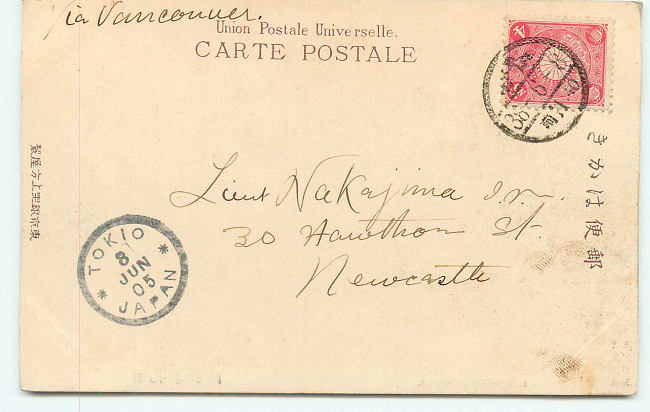 Via Vancouver.
Union Postale Universelle.
CARTE POSTALE
郵便はかき
東京銀座上方屋製
Lieut Nakajima I.J.N.
30 Hawthorn St.
Newcastle
TOKIO
8
JUN
05
JAPAN